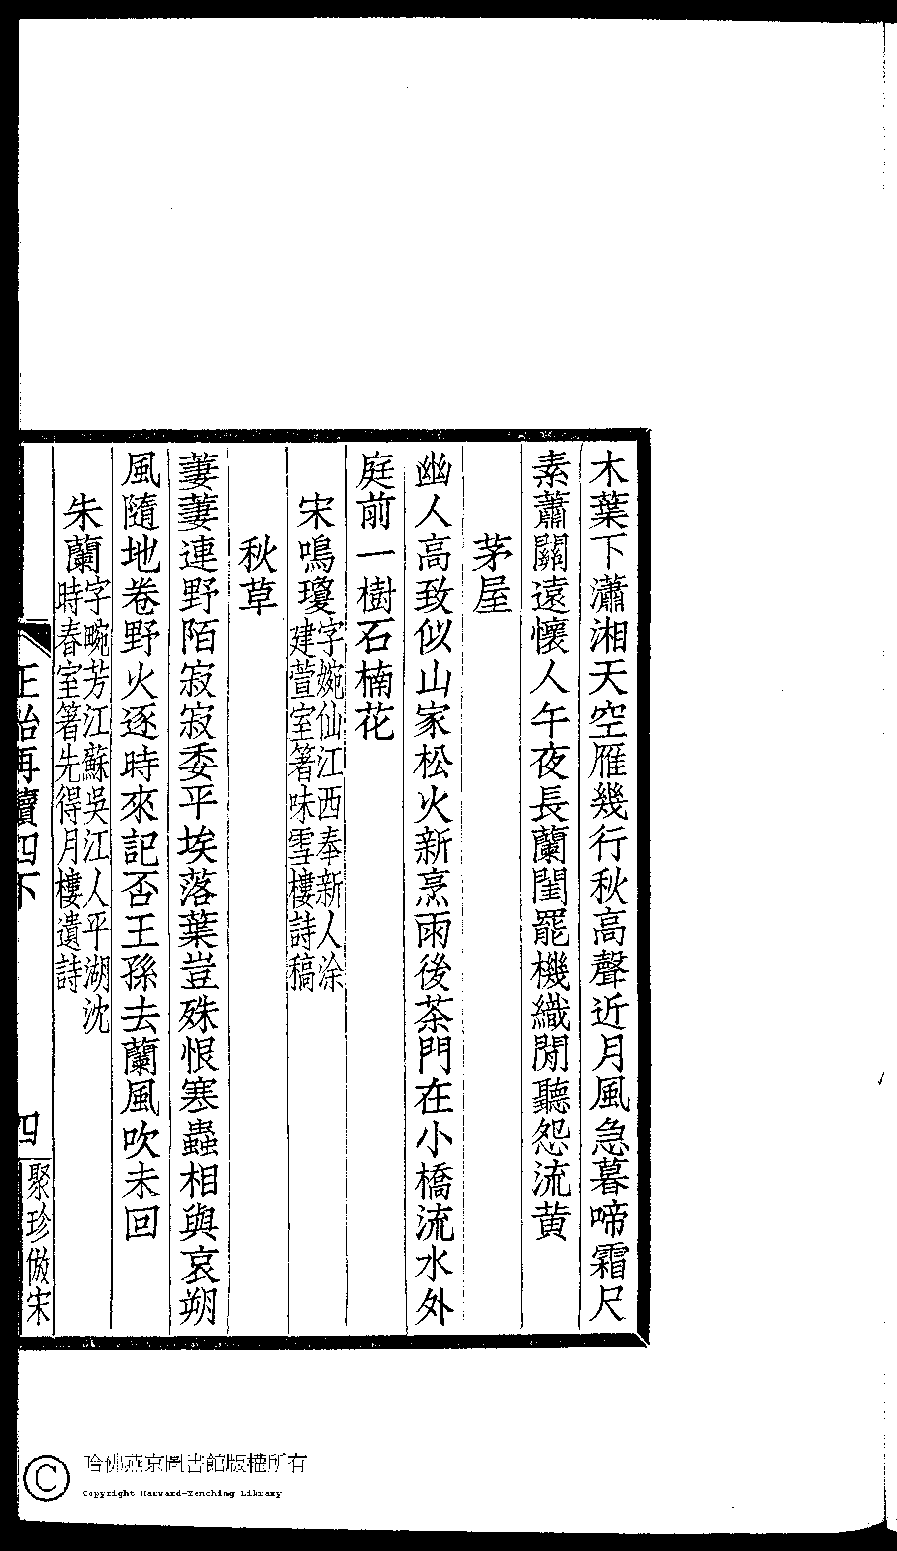 木葉下瀟湘天空雁幾行秋高聲近月風急暮啼霜尺
素蕭關遠懷人午夜長蘭閨罷機織閒聽怨流黃
茅屋
幽人高致似山家松火新烹雨後茶門在小橋流水外
庭前一樹石楠花
宋鳴瓊
字婉仙江西奉新人涂
建萱室箸味雪樓詩稿
秋草
萋萋連野陌寂寂委平埃落葉豈殊恨寒蟲相與哀朔
風隨地卷野火逐時來記否王孫去蘭風吹未回
朱蘭
字畹芳江蘇吳江人平湖沈
時春室箸先得月樓遺詩
正始再續四下
四
聚珍倣宋
哈佛燕京圖書館版權所有
Copyright Harvard-Yenching Library